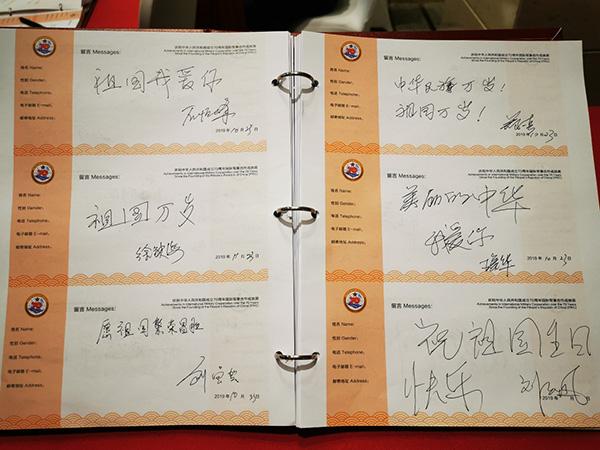 留言 Messages:
庆祝中华人民共和国成立70周年国际军事合作成就展
Achievements in International Military Cooperation over the 70 Years
Since the Founding of the People's Republic of China (PRC)
姓名 Name:
性别 Gender:
电话 Telephone:
电子邮箱 E-mail:
邮寄地址 Address:
祖国我爱你
2019年10月23日
留言 Messages:
庆祝中华人民共和国成立70周年国际军事合作成就展
Achievements in International Military Cooperation over the 70 Years
Since the Founding of the People's Republic of China (PRC)
姓名 Name:
性别 Gender:
电话 Telephone:
电子邮箱 E-mail:
邮寄地址 Address:
祖国万岁
2019年10月23日
留言 Messages:
庆祝中华人民共和国成立70周年国际军事合作成就展
Achievements in International Military Cooperation over the 70 Years
Since the Founding of the People's Republic of China (PRC)
姓名 Name:
性别 Gender:
电话 Telephone:
电子邮箱 E-mail:
邮寄地址 Address:
愿祖国繁荣昌盛
2019年10月23日
留言 Messages:
庆祝中华人民共和国成立70周年国际军事合作成就展
Achievements in International Military Cooperation over the 70 Years
Since the Founding of the People's Republic of China (PRC)
姓名 Name:
性别 Gender:
电话 Telephone:
电子邮箱 E-mail:
邮寄地址 Address:
中华民族万岁!
祖国万岁!
2019年10月23日
留言 Messages:
庆祝中华人民共和国成立70周年国际军事合作成就展
Achievements in International Military Cooperation over the 70 Years
Since the Founding of the People's Republic of China (PRC)
姓名 Name:
性别 Gender:
电话 Telephone:
电子邮箱 E-mail:
邮寄地址 Address:
美丽的中华
我爱你
2019年10月23日
留言 Messages:
庆祝中华人民共和国成立70周年国际军事合作成就展
Achievements in International Military Cooperation over the 70 Years
Since the Founding of the People's Republic of China (PRC)
姓名 Name:
性别 Gender:
电话 Telephone:
电子邮箱 E-mail:
邮寄地址 Address:
祝祖国生日
快乐
2019年